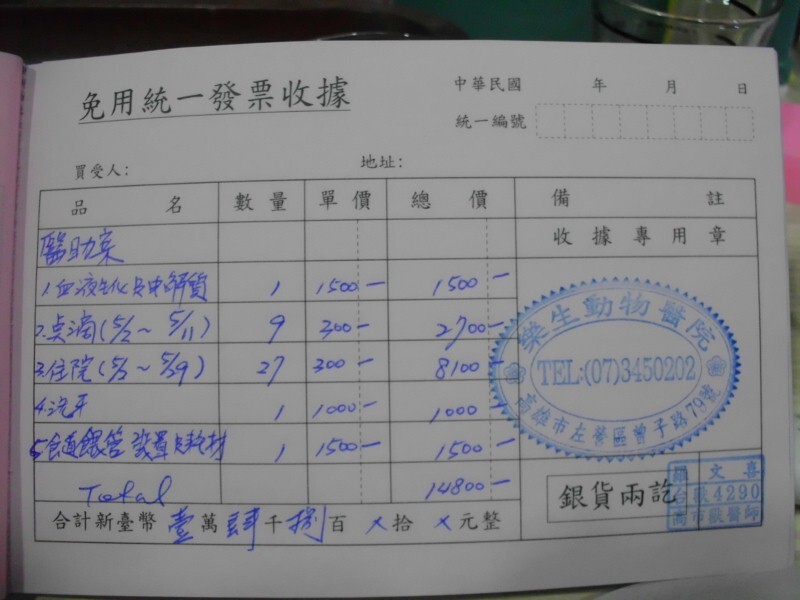 免用統一發票收據
中華民國 年 月 日
統一編號
買受人: 地址:
品名 數量 單價 總價 備註
收據專用章
醫助案
1.血液生化與電解質 1 1500- 1500-
2.點滴(5/2~5/11) 9 300- 2700-
3.住院(5/2~5/29) 27 300- 8100-
4.洗牙 1 1000- 1000-
5.食道餵管 裝置與耗材 1 1500- 1500-
Total 14800-
合計新臺幣 壹萬肆千捌百 x拾 x元整
樂生動物醫院
TEL:(07)3450202
高雄市左營區曾子路79號
銀貨兩訖
羅文喜
台獸4290
高市獸醫師